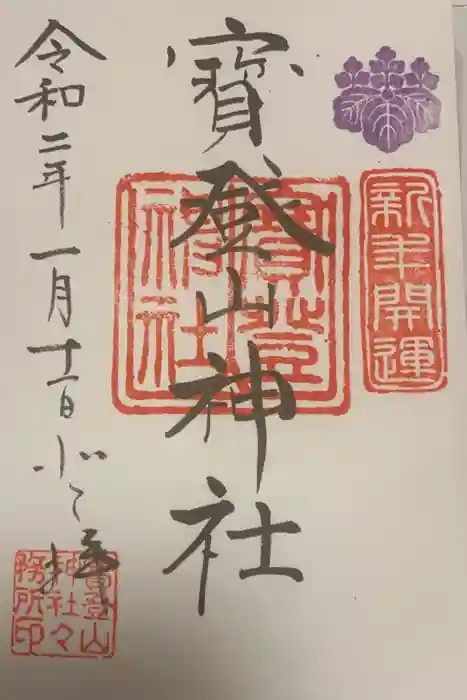 新年開運
寶登山神社
寶登山
神社
令和二年一月十
寶登山
神社々
務所印